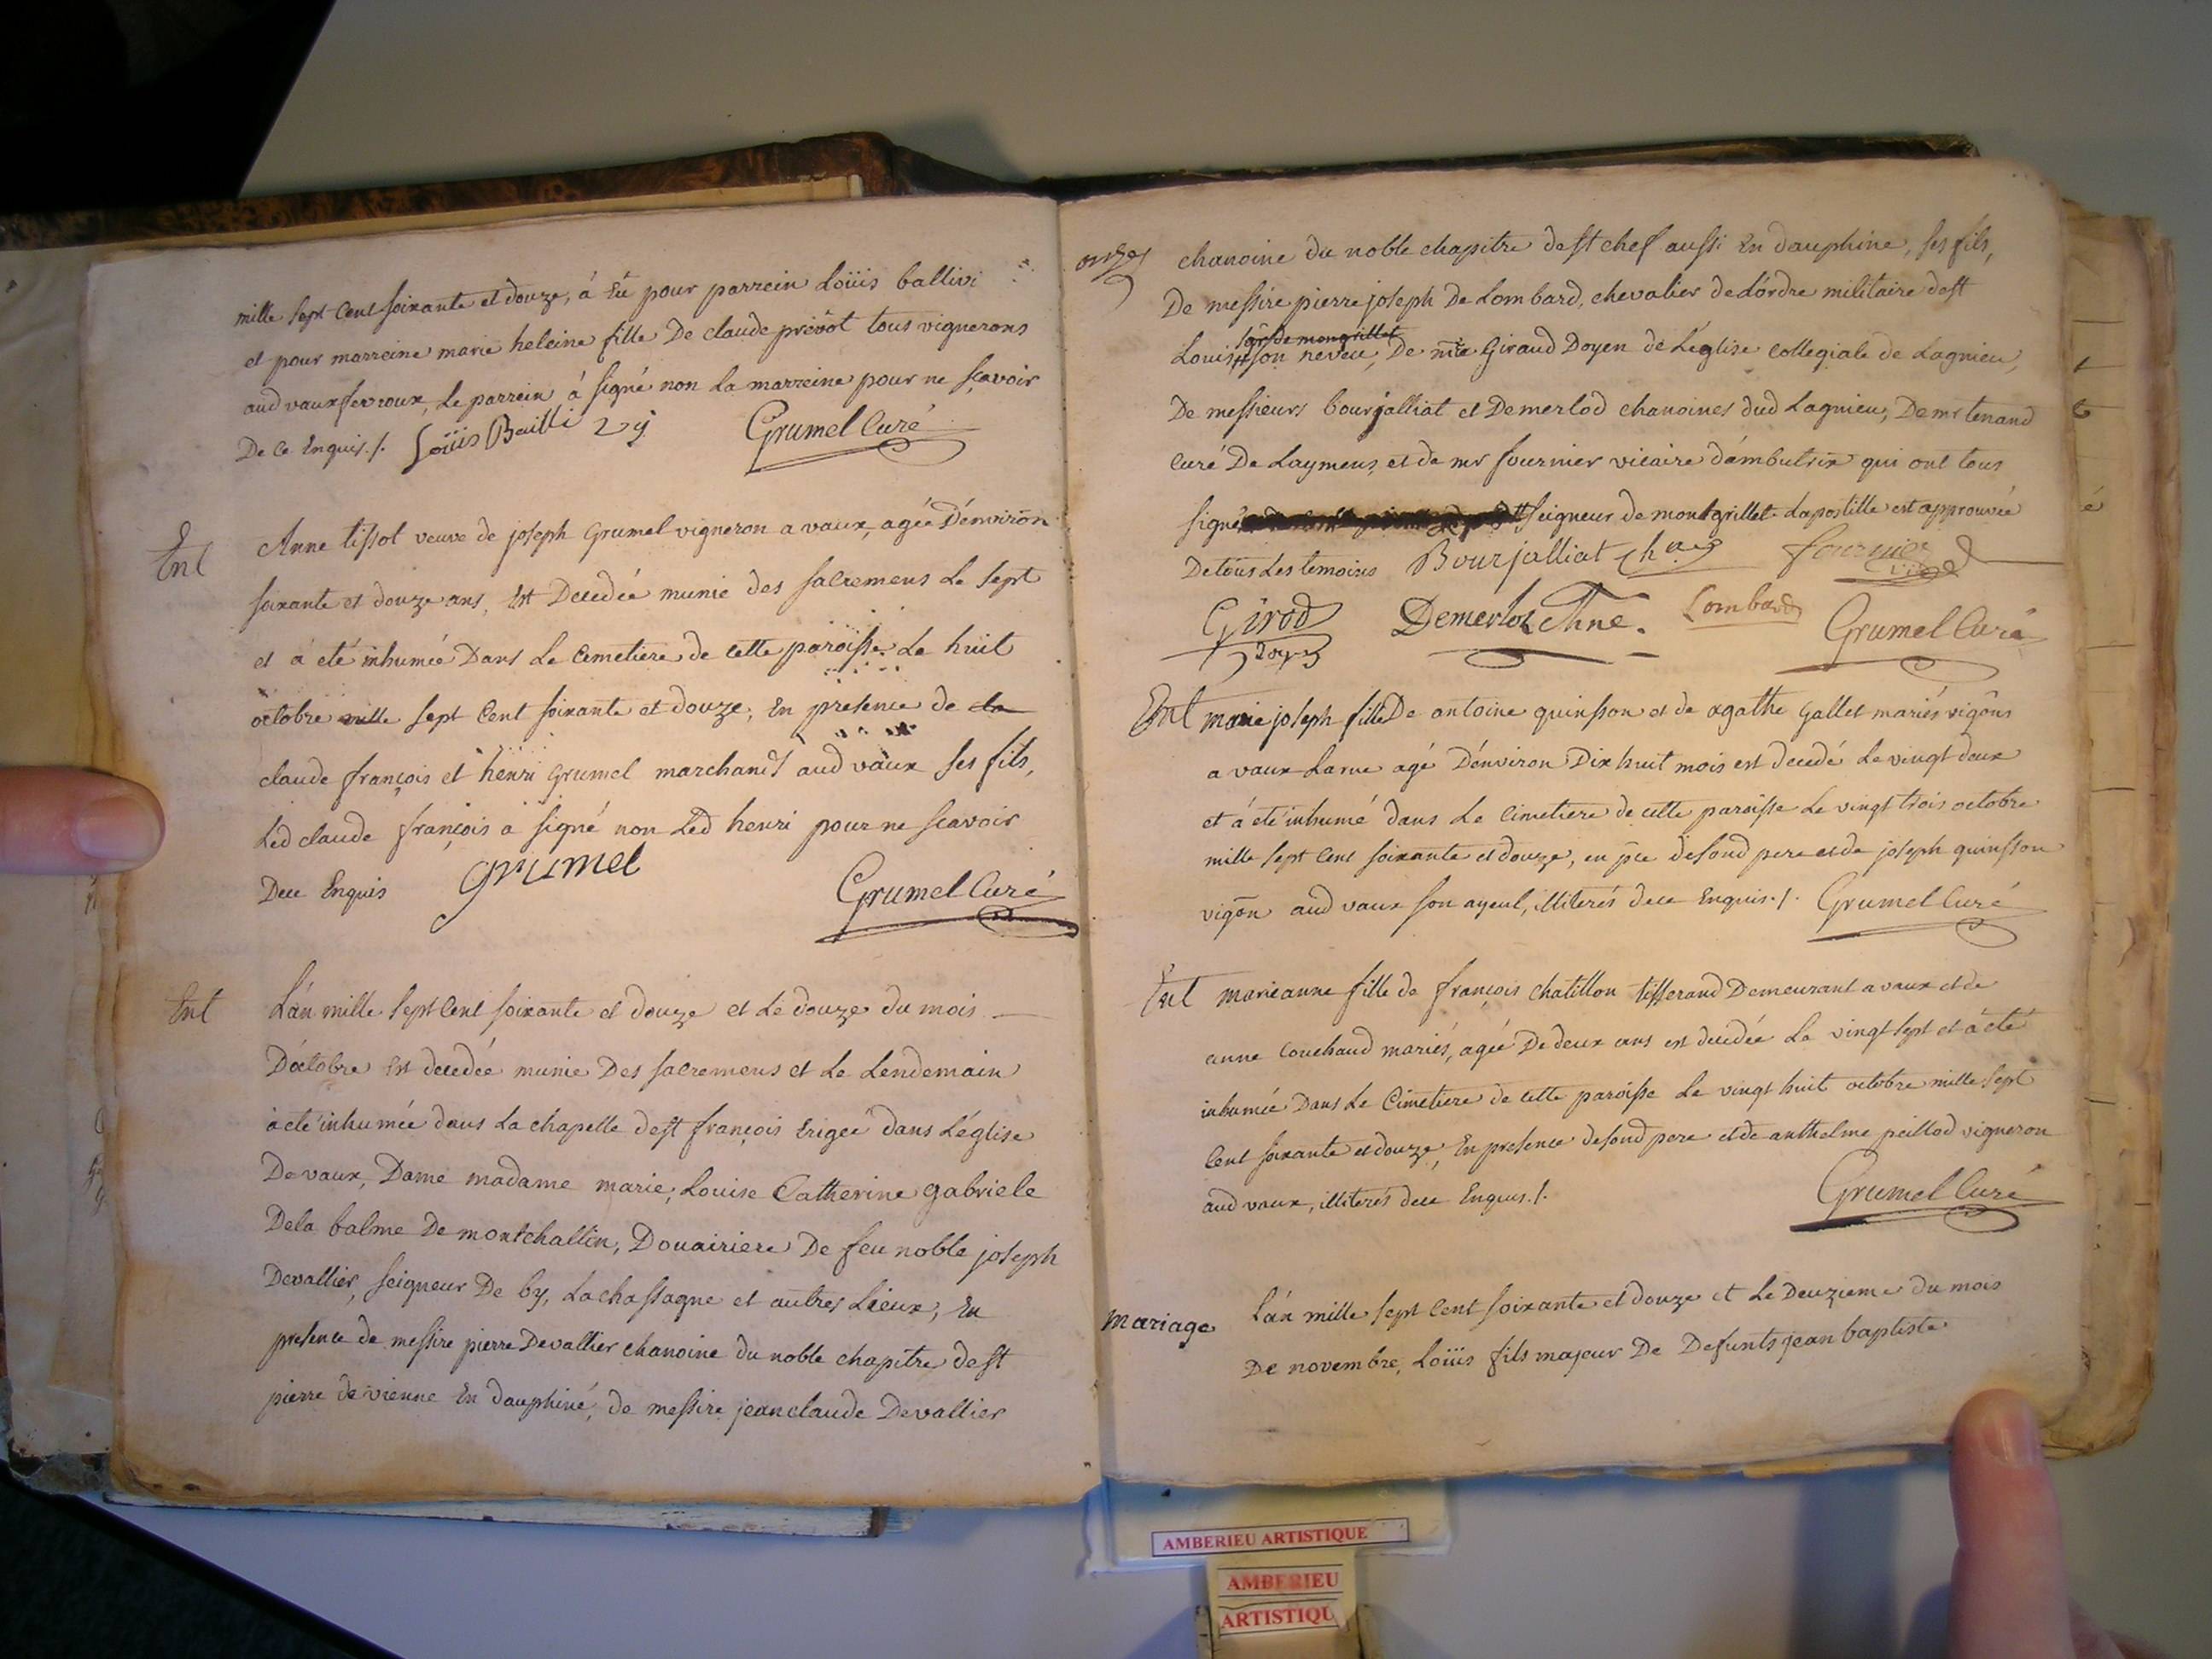 mille sept cent soixante et douze, á Eu pour parrein Loüis ballivi
et pour marreine marie heleine fille De claude prévôt tous vignerons
aud vaux fevroux, Le parrein á signé non La marreine pour ne sçavoir
De ce Enquis ./. Loüis Bailli Grumel Curé
Ent Anne tissot veuve de joseph Grumel vigneron a vaux, agée D'énviron
soixante et douze ans, Est Decedée munie des sacremens Le sept
et a eté inhumée Dans Le Cemetiere de cette paroisse Le huit
octobre mille sept Cent soixante et douze, En presence de la
claude françois et henri Grumel marchands aud vaux ses fils,
Led claude françois a signé non Led henri pour ne scavoir
Dece Enquis grumel Grumel Curé
Ent L'án mille sept Cent soixante et douze et Le douze du mois
D'óctobre Est decedée munie Des sacremens et Le Lendemain
a eté inhumée dans La chapelle de st françois Erigée dans L'église
De vaux, Dame madame marie, Louise Catherine gabriele
Dela balme De montchallin, Douairiere De feu noble joseph
Devallier, seigneur De by, La chassagne et autres Lieux, En
presence de messire pierre Devallier chanoine du noble chapitre de st
pierre de vienne En dauphiné, de messire jean claude Devallier
onze chanoine du noble chapitre de st chef aussi En dauphine, ses fils,
De messire pierre joseph De Lombard, chevalier de L'ordre militaire de st
sgr de mongrillet
Louis son neveu, De mre Giraud Doyen de L'église Collegiale de Lagnieu,
De messieurs bourjalliat et Demerlod chanoines dud Lagnieu, De mr tenand
Curé De Laymens, et de mr fournier vicaire d'ámbutrix qui ont tous
signé seigneur de montgrillet Lapostille est approuvée
De toûs Les temoins Bourjalliat chne fournier vic
Girod Doyen Demerloz Chne. Lombard Grumel Curé
Ent marie joseph fille De antoine quinsson et de agathe Gallet mariés vigōns
a vaux Larue agé D'énviron Dix huit mois est decedé Le vingt deux
et á eté inhumé dans Le Cimetiere de cette paroisse Le vingt trois octobre
mille sept Cent soixante et douze, en pce de sond pere et de joseph quinsson
vigōn aud vaux son ayeul, illiterés dece Enquis ./. Grumel Curé
Ent marieanne fille de françois chatillon tisserand Demeurant a vaux et de
anne Couchaud mariés, agée De deux ans est decedée Le vingt sept et á eté
inhumée Dans Le Cimetiere de cette paroisse Le vingt huit octobre mille sept
Cent soixante et douze, En presence de sond pere et de anthelme peillod vigneron
aud vaux, illiterés dece Enquis ./. Grumel Curé
mariage L'án mille sept Cent soixante et douze et Le Deuzieme du mois
De novembre, Loüis fils majeur De Defunts jean baptiste
AMBERIEU ARTISTIQUE
AMBERIEU
ARTISTIQU